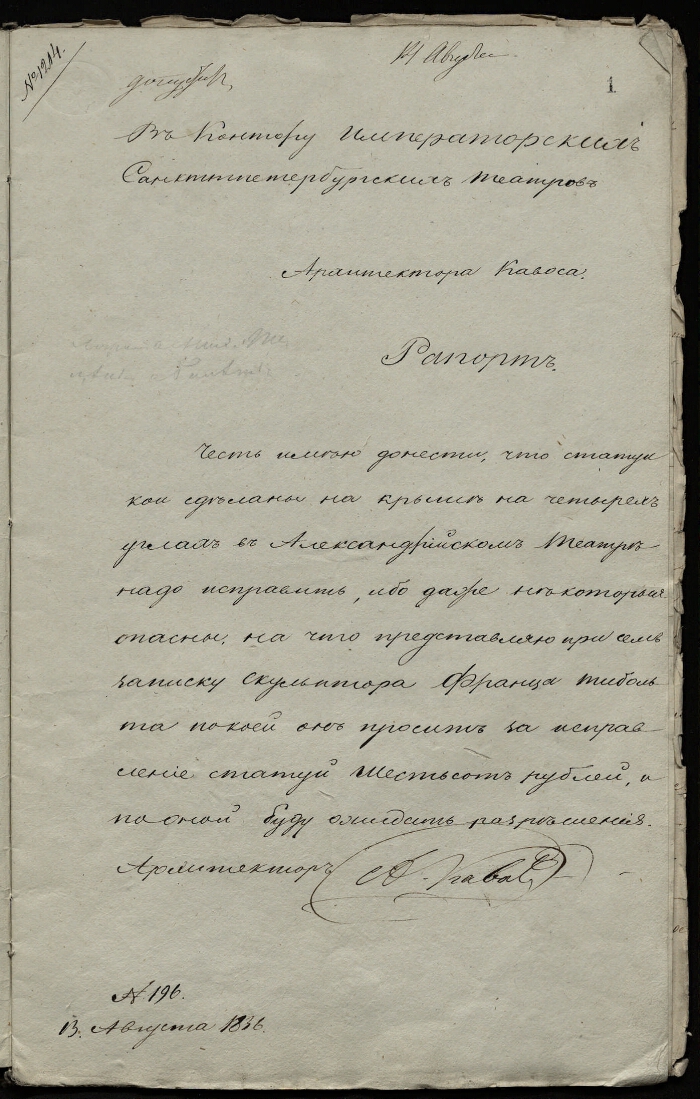 № 1214.
14 Августа
1
Въ Контору Императорскихъ
Санктпетербургскихъ театровъ
Архитектора Кавоса.
Рапортъ.
Честь имѣю донести, что статуи
кои сдѣланы на крышѣ на четырехъ
углахъ въ Александрійскомъ театрѣ
надо исправить, ибо даже нѣкоторыя
опасны, на что представляю при семъ
записку скульптора Франца Тиболь
та по коей онъ проситъ за исправ
леніе статуй шестьсотъ рублей, и
по оной буду ожидать разрѣшенія.
Архитекторъ А. Кавосъ
№ 196.
13. Августа 1836.